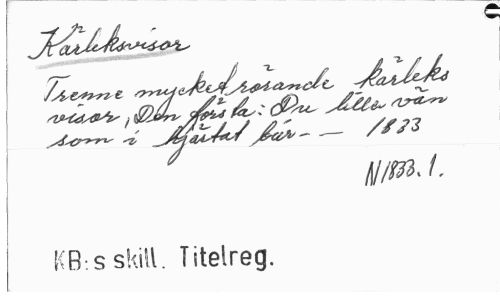 Kärleksvisor
Trenne mycket rörande kärleks
visor, Den första: Du lilla vän
som i hjärtat bär - - 1833
N1833.1.
KB:s skill. Titelreg.